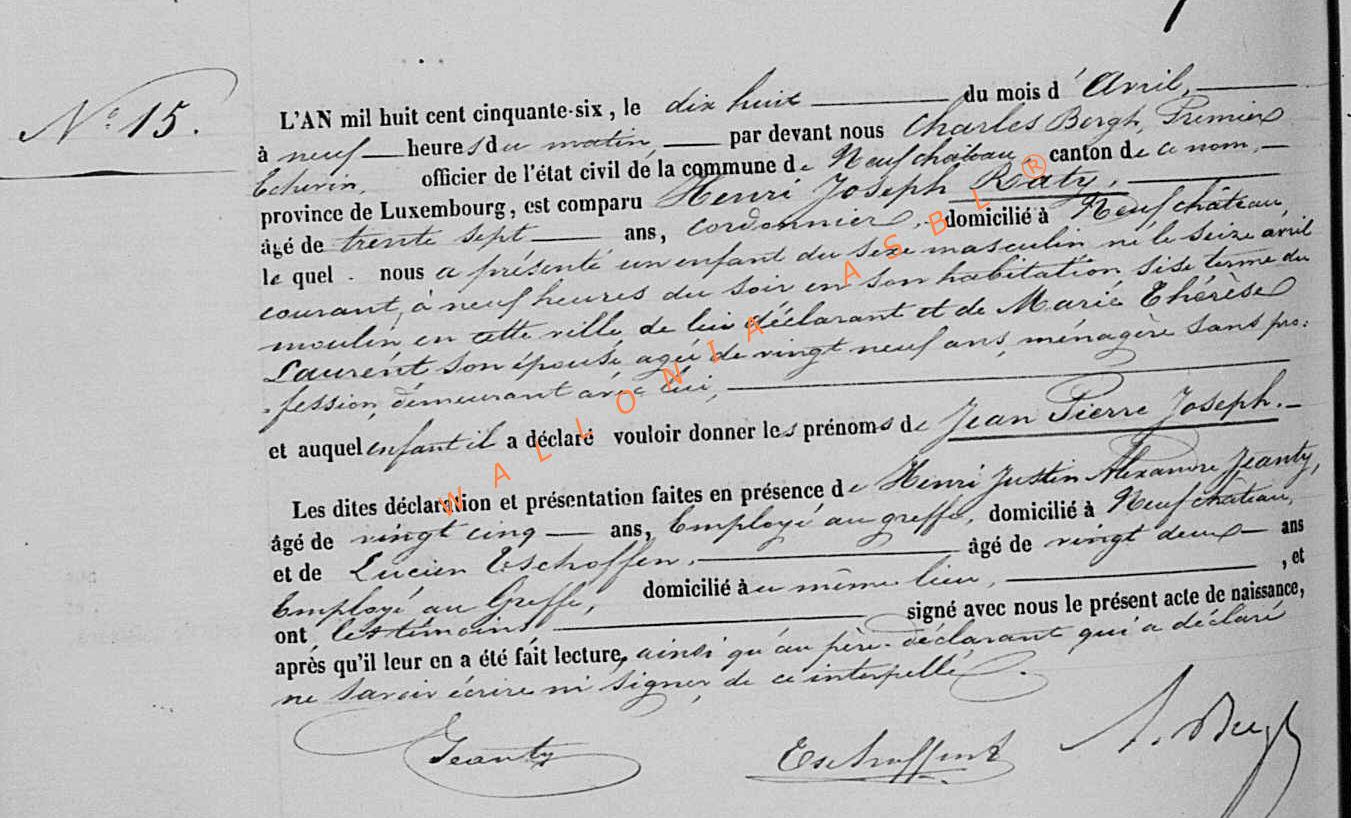 N° 15.
L'AN mil huit cent cinquante-six, le dix huit du mois d'Avril,
à neuf heures du matin, par devant nous Charles Bergh, Premier
Echevin, officier de l'état civil de la commune de Neufchâteau, canton de ce nom,
province de Luxembourg, est comparu Henri Joseph Raty,
âgé de trente sept ans, cordonnier, domicilié à Neufchâteau,
le quel nous a présenté un enfant du sexe masculin né le seize avril
courant, à neuf heures du soir en son habitation sise terme du
moulin en cette ville de lui déclarant et de Marie Thérèse
Laurent son épouse agée de vingt neuf ans, ménagère sans pro-
fession, demeurant avec lui,
et auquel enfant il a déclaré vouloir donner les prénoms de Jean Pierre Joseph.
Les dites déclaration et présentation faites en présence de Henri Justin Alexandre Jeanty,
âgé de vingt cinq ans, Employé au greffe, domicilié à Neufchâteau,
et de Lucien Eschoffen, âgé de vingt deux ans
Employé au Greffe, domicilié au même lieu, , et
ont les témoins signé avec nous le présent acte de naissance,
après qu'il leur en a été fait lecture, ainsi qu'au père déclarant qui a déclaré
ne savoir écrire ni signer, de ce interpellé.
Jeanty
WALLONIA ASBL ®